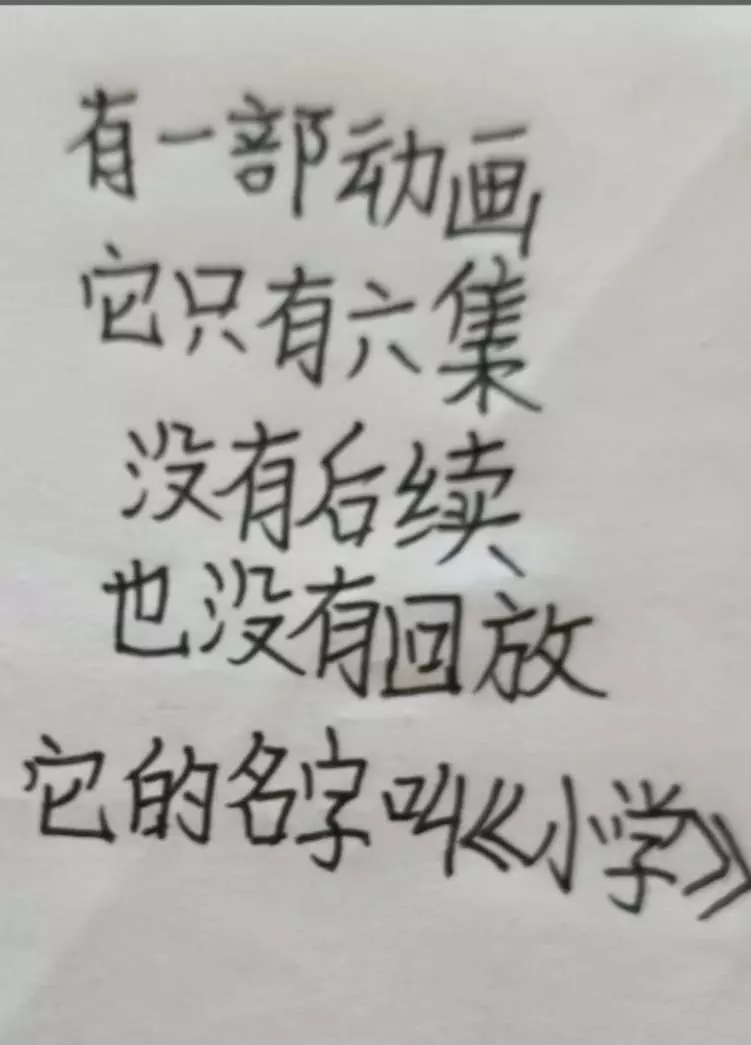 有一部动画
它只有六集
没有后续
也没有回放
它的名字叫《小学》